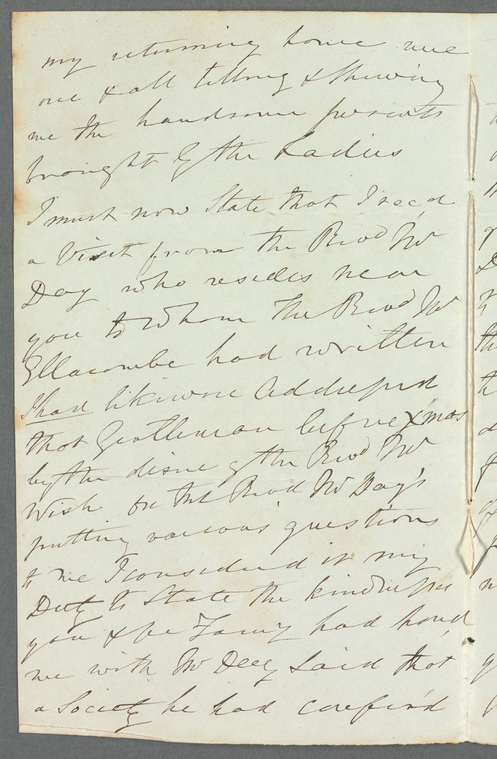 my returning home were
one & all telling & Shewing
me the handsome presents
brought by the Ladies
I must now State that I rec'd
a Visit from the Revd Mr
Day who resides near
you to Whom the Revd Mr
Ellacombe had written
I had likiwise addressed
that Gentleman before Xmas
by the disire of the Revd Mr
Wish on the Revd Mr Day's
putting various questions
to me I considered it my
Duty to State the kindness
you & Family had
me with Mr Day Said that
a Society he had